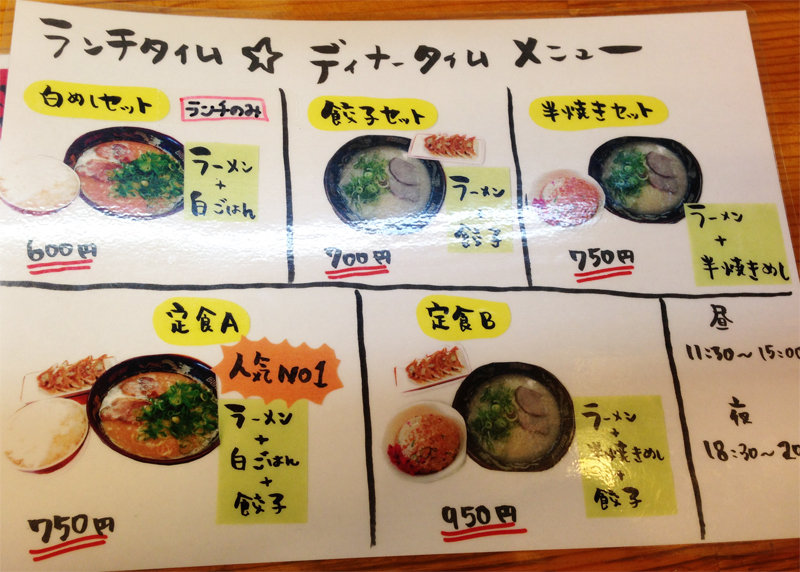 ランチタイム ☆ ディナータイム メニュー
白めしセット
ランチのみ
ラーメン
+
白ごはん
600円
餃子セット
ラーメン
餃子
700円
半焼きセット
ラーメン
+
半焼きめし
750円
定食A
人気NO1
ラーメン
+
白ごはん
+
餃子
750円
定食B
ラーメン
+
半焼きめし
+
餃子
950円
昼
11:30〜15:00
夜
18:30〜20